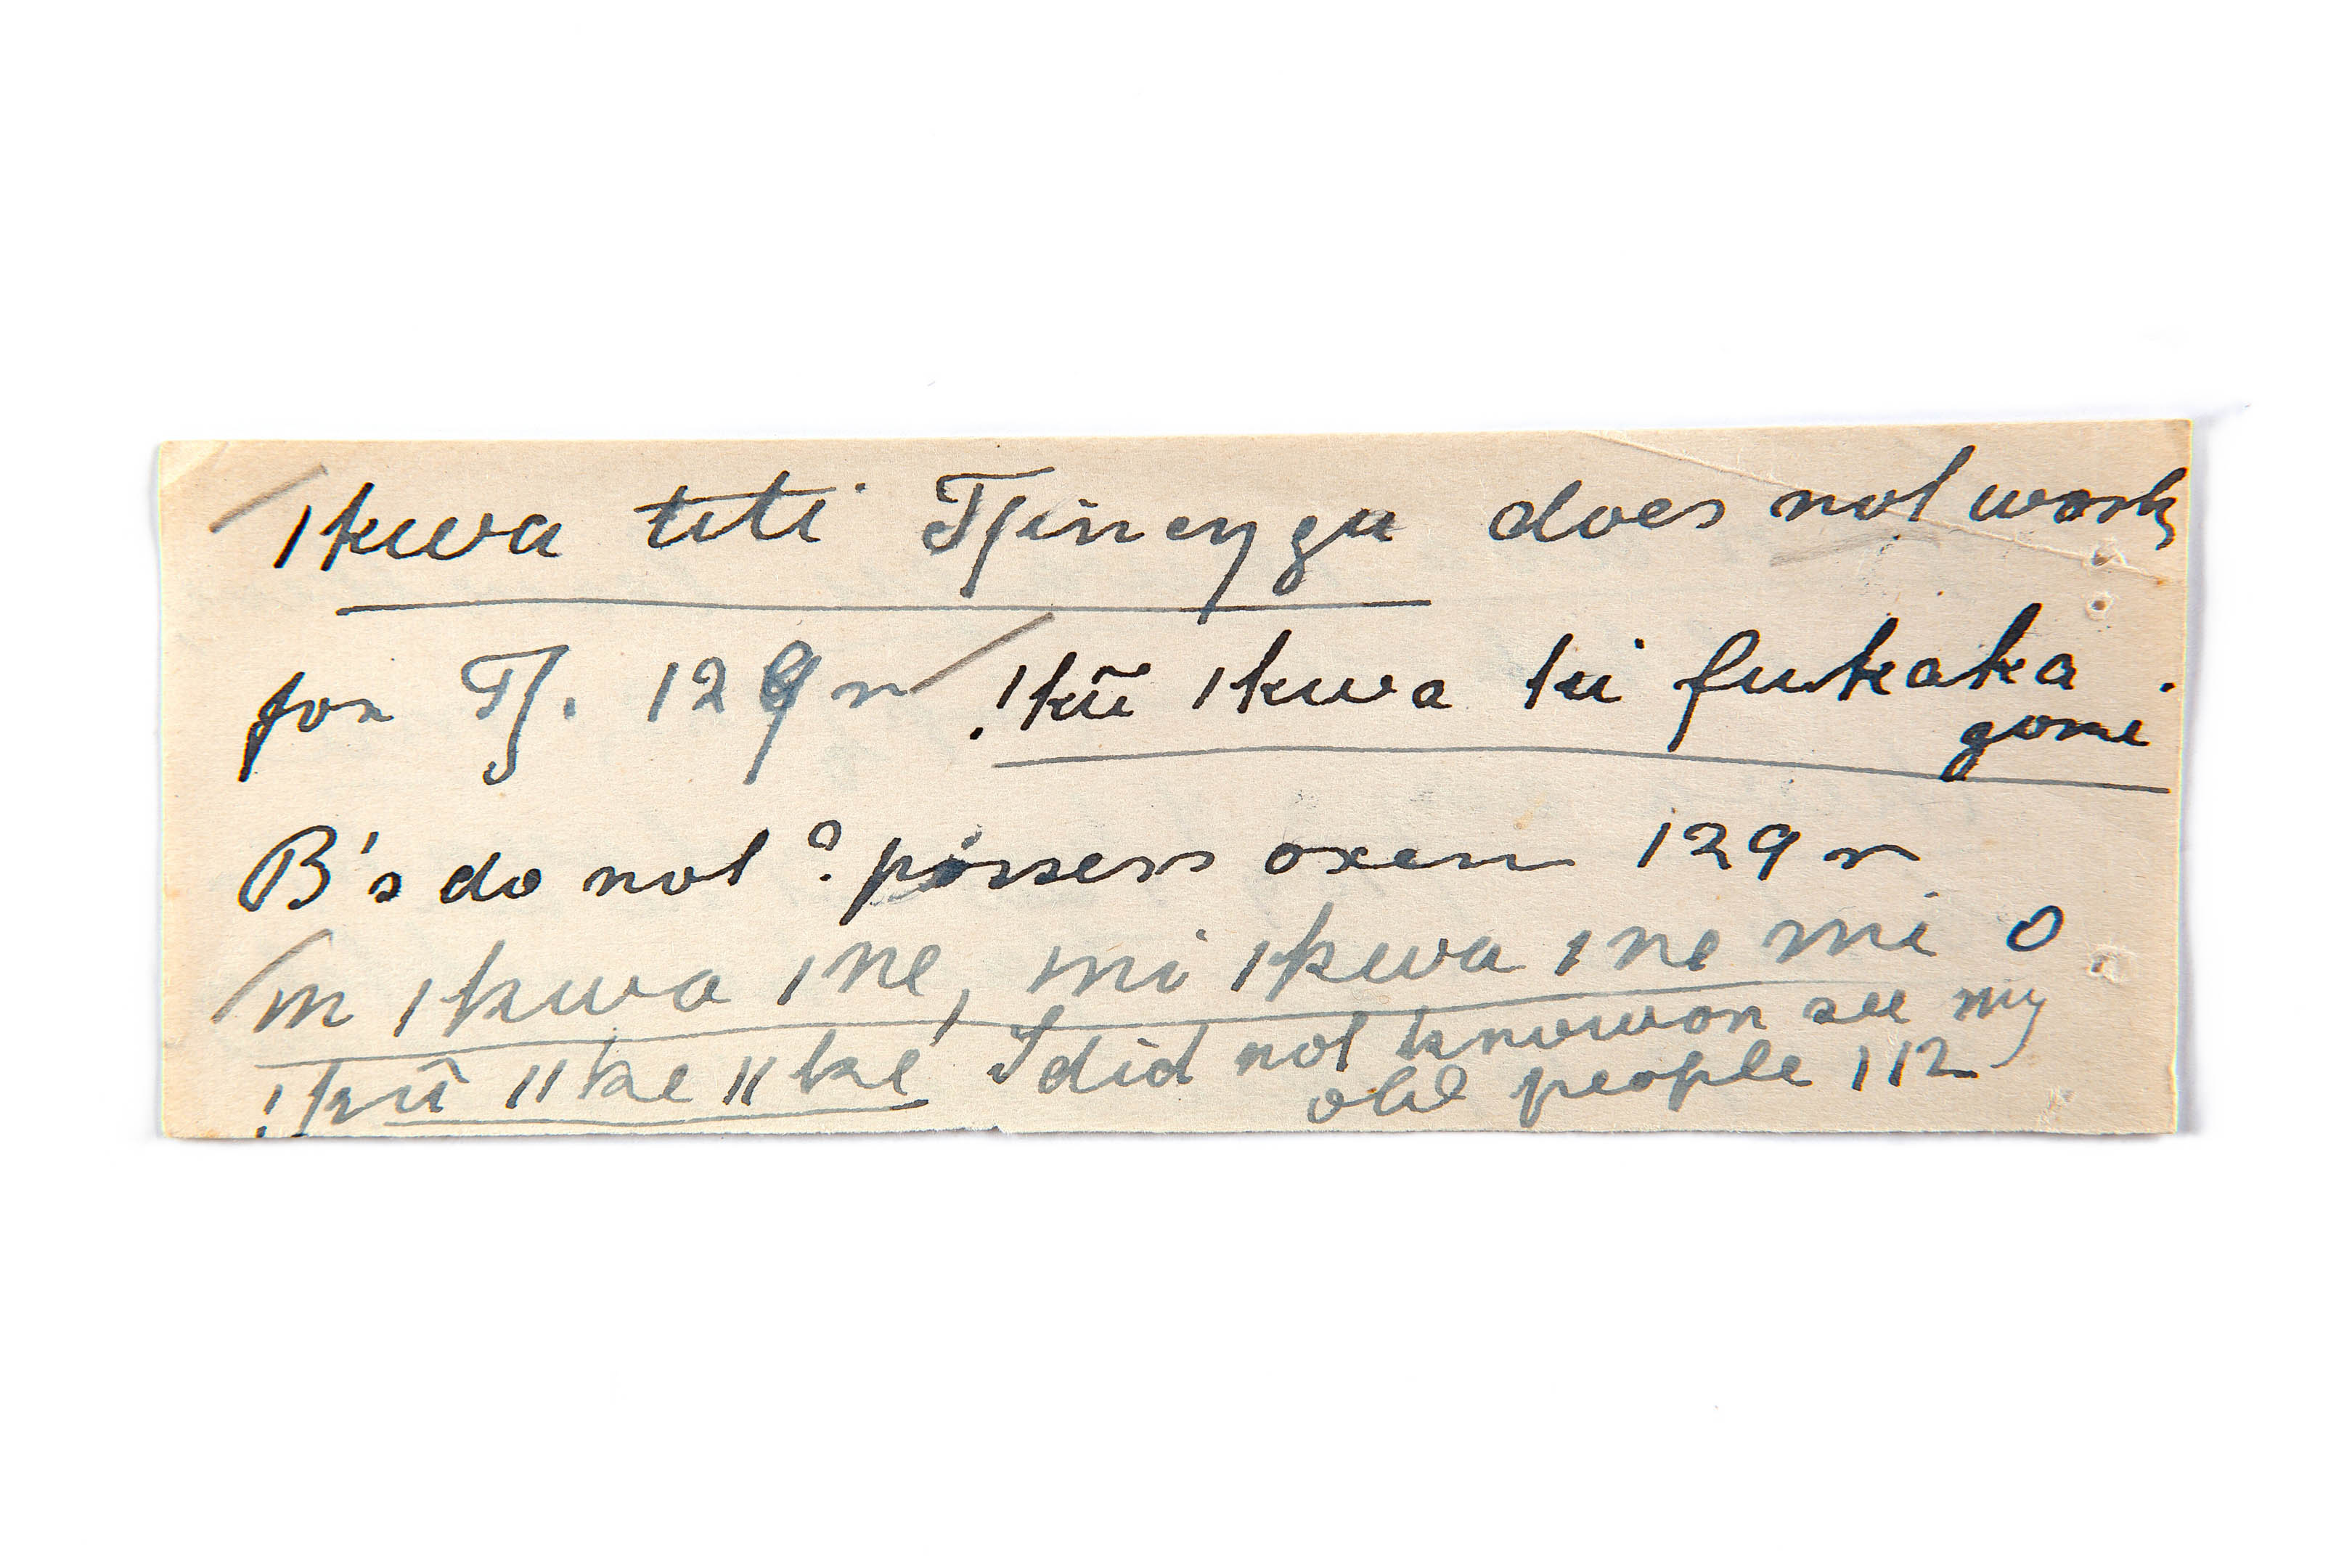 / ǀkwa titi Tʃineŋgu does not work
for Tʃ. 129 r / !kũ ǀkwa ti fukaka .
gome
B's do not ? possess oxen 129 r
/ m ǀkwa ǀne, mi ǀkwa ǀne mi o
!kũ ǁke ǁke, I did not know or see my
old people 112